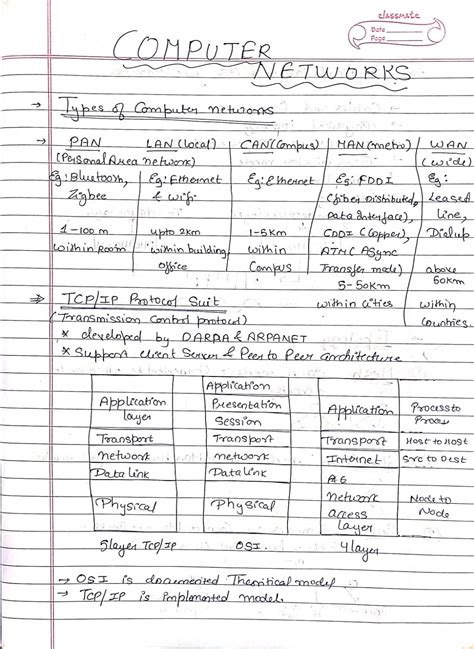 classmate
Date
Page
COMPUTER
NETWORKS
→ Types of Computer networks
→ PAN LAN (local) CAN (Campus) MAN (metro) WAN
(Personal Area network) (wide)
Eg: Bluetooth, Eg: Ethernet Eg: Ethernet Eg: FDDI Eg:
Zigbee & wifi (fiber distributed Leased
Data interface), line,
1-100 m upto 2km 1-5km CDDI (Copper), Dialup
within Room within building within ATM (ASync
office Campus Transfer mode) above
5-50km 50km
within cities within
Countries.
⇒ TCP/IP Protocol Suit
(Transmission Control protocol)
* developed by DARPA & ARPANET
* Support client Server & Peer to Peer architecture
Application
Application Presentation Application Process to
layer Session Process
Transport Transport Transport Host to Host
network network Internet Src to Dest
Data link Data link
Physical Physical network Node to
access Node
layer
5 layer TCP/IP OSI. 4 layer
→ OSI is documented Theoritical model
→ TCP/IP is implemented model.